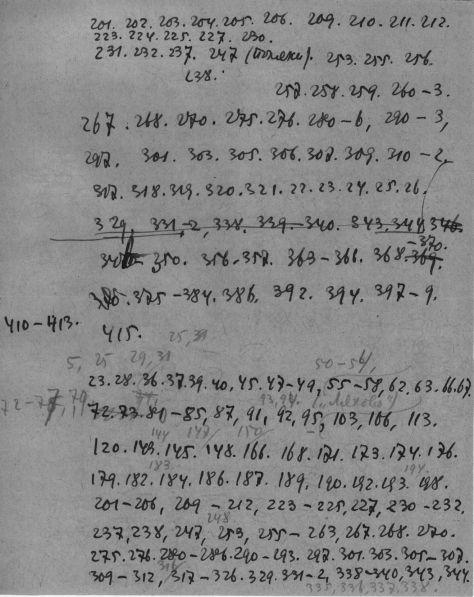 201. 202. 203. 204. 205. 206. 209. 210. 211. 212.
223. 224. 225. 227. 230.
231. 232. 237. 247 253. 255. 256.
238.
257. 258. 259. 260-3.
267. 268. 270. 275. 276. 280-6, 290-3,
297. 301. 303. 305. 306. 307. 309. 310-2,
317. 318. 319. 320. 321. 22. 23. 24. 25. 26.
329, 331,-2, 338. 339-340. 343. 344 346
-370.
350. 356-357. 363-366. 368. 369.
375-384. 386. 392. 394. 397-9.
410-413. 415. 25, 31
5, 25 29, 31 50-54,
23. 28. 36. 37. 39. 40, 45. 47-49, 55-58, 62, 63. 66. 67.
72-77, 79 93, 94.
72. 73. 80-85, 87, 91, 92, 95, 103, 106, 113.
144 147 150
120. 143. 145. 148. 166. 168. 171. 173. 174. 176.
183 194
179. 182. 184. 186. 187. 189. 190. 192. 193. 198.
201-206, 209-212, 223-225, 227, 230-232,
248
237, 238, 247, 253, 255-263, 267. 268. 270.
275. 276. 280-286. 290-293. 297. 301. 303. 305-307.
309-312, 317-326. 329. 331-2, 338-340, 343, 344.
335, 336, 337, 338.